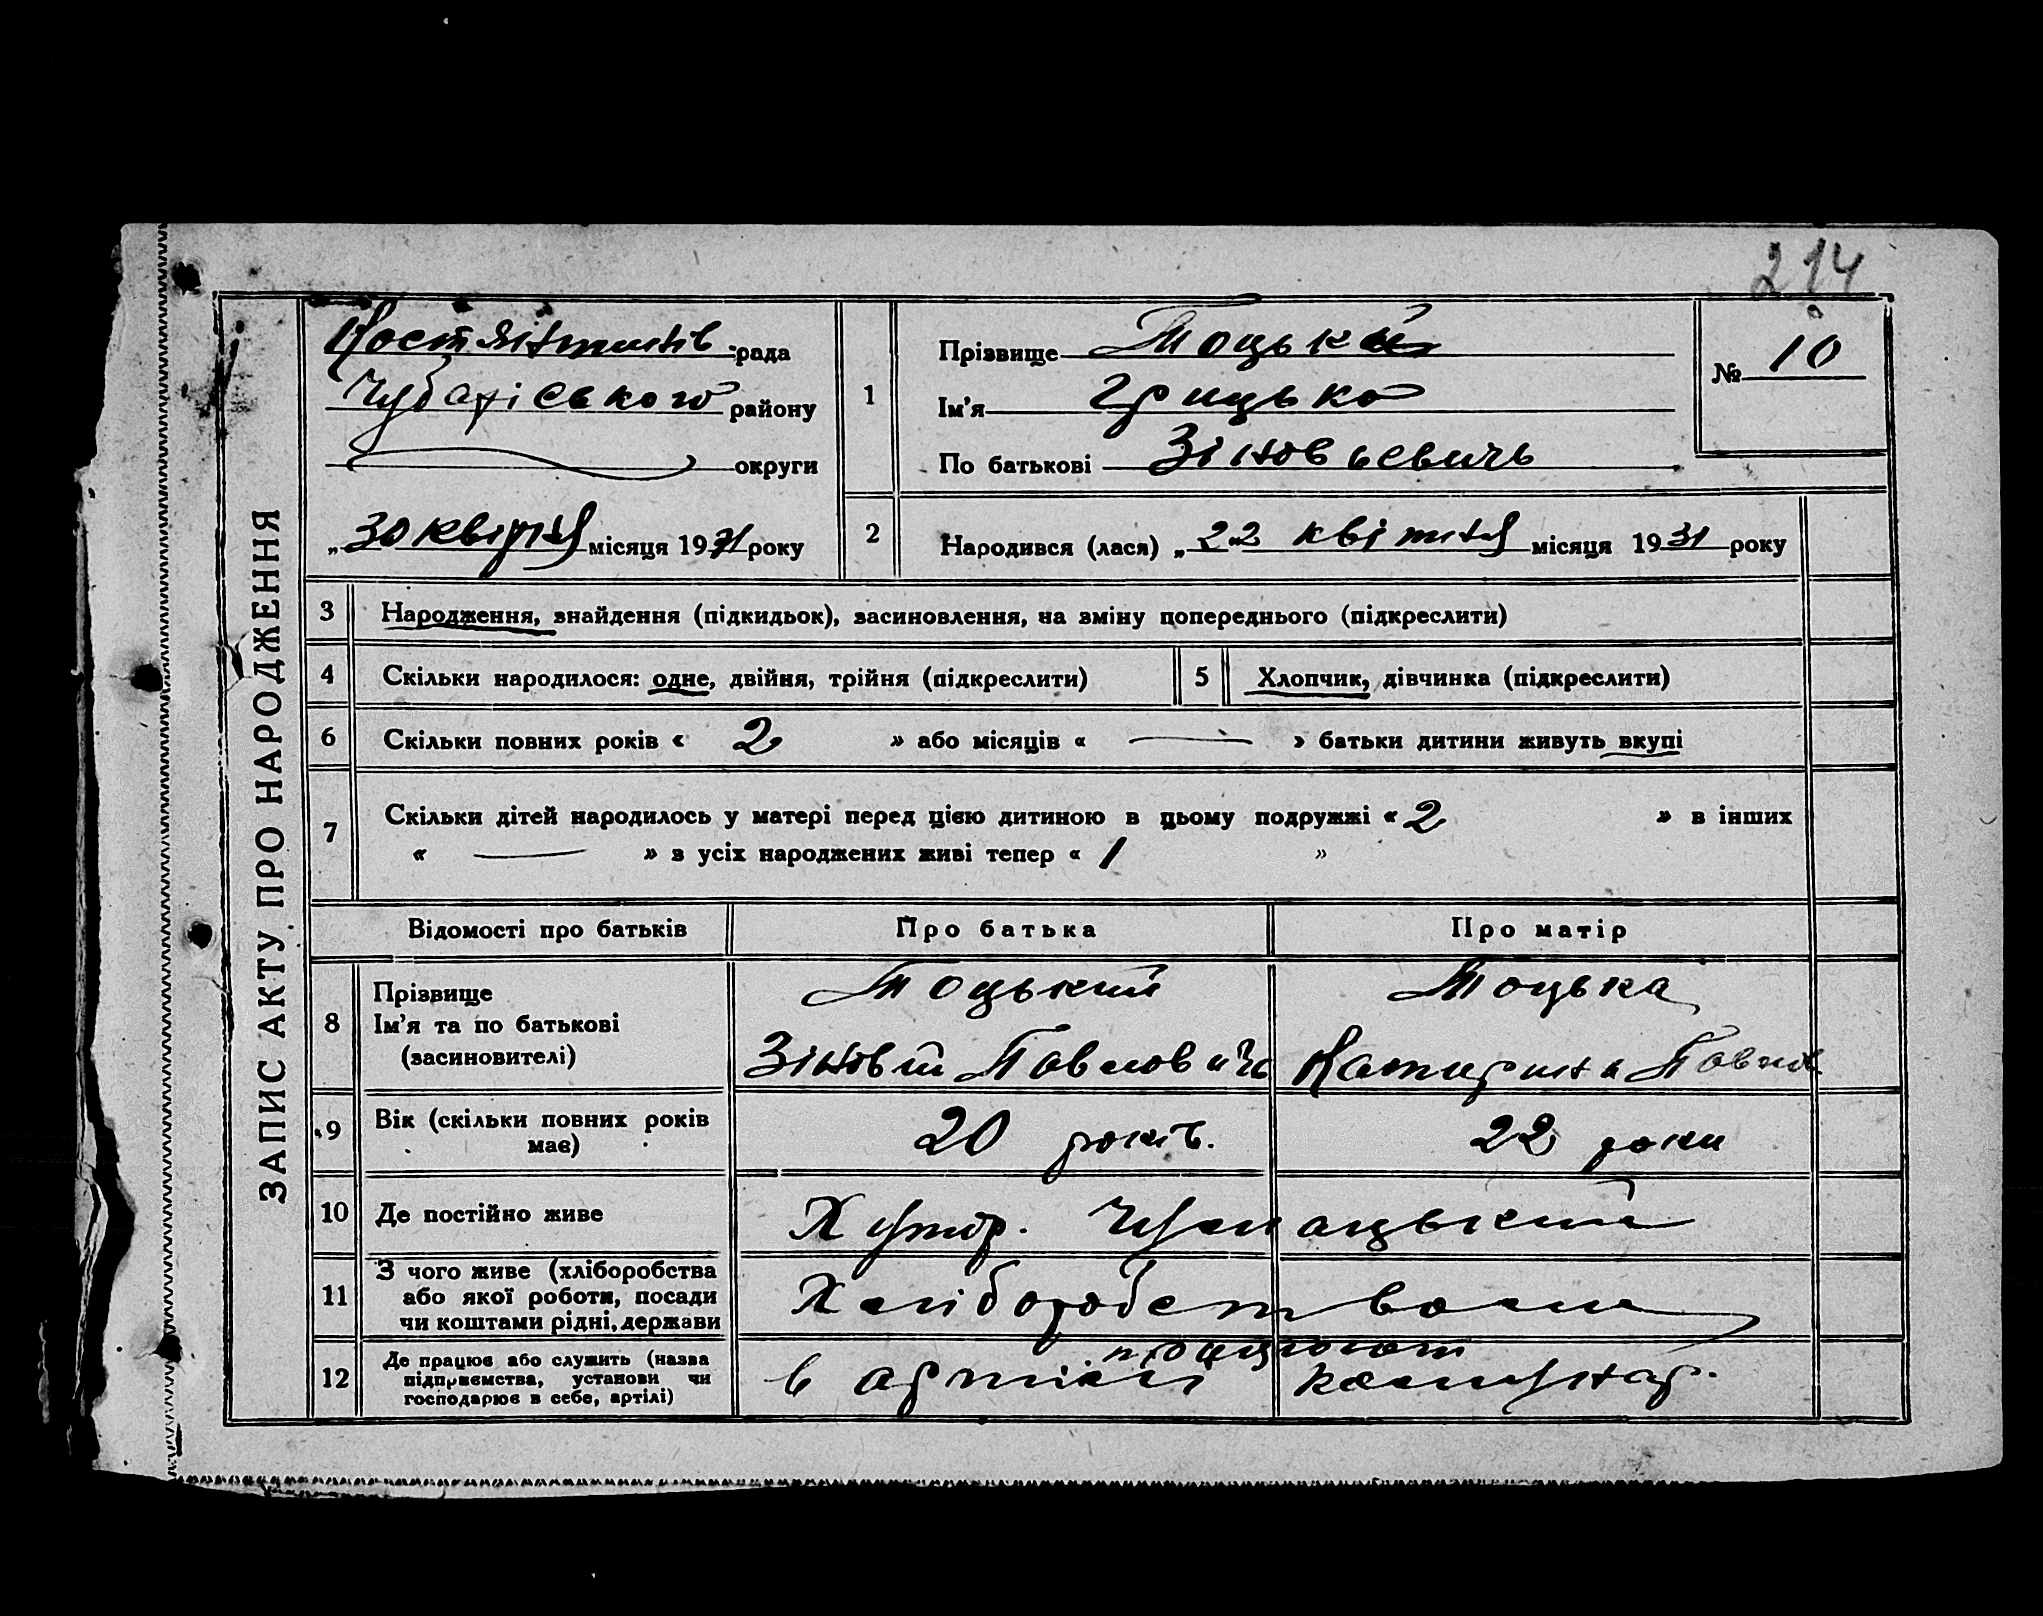 214
ЗАПИС АКТУ ПРО НАРОДЖЕННЯ
Костянтинів рада
Чубарівського району
округи
„30 квітня місяця 1931 року
1
Прізвище Тоцький
Ім'я Грицько
По батькові Зіновьевичь
№ 10
2
Народився (лася) „22 квітня місяця 1931 року
3 Народження, знайдення (підкидьок), засиновлення, на зміну попереднього (підкреслити)
4 Скільки народилося: одне, двійня, трійня (підкреслити) 5 Хлопчик, дівчинка (підкреслити)
6 Скільки повних років « 2 » або місяців « — » батьки дитини живуть вкупі
7 Скільки дітей народилось у матері перед цією дитиною в цьому подружжі « 2 » в інших
« — » в усіх народжених живі тепер « 1 »
Відомості про батьків Про батька Про матір
8 Прізвище
Ім'я та по батькові
(засиновителі)
Тоцький
Зіновій Павловичь
Тоцька
Катирина Павлов
9 Вік (скільки повних років
має)
20 років. 22 роки
10 Де постійно живе Хутор.
11 З чого живе (хліборобства
або якої роботи, посади
чи коштами рідні, держави
Хліборобством
12 Де працює або служить (назва
підприємства, установи чи
господарює в себе, артілі)
працюють
в артілі комунар.